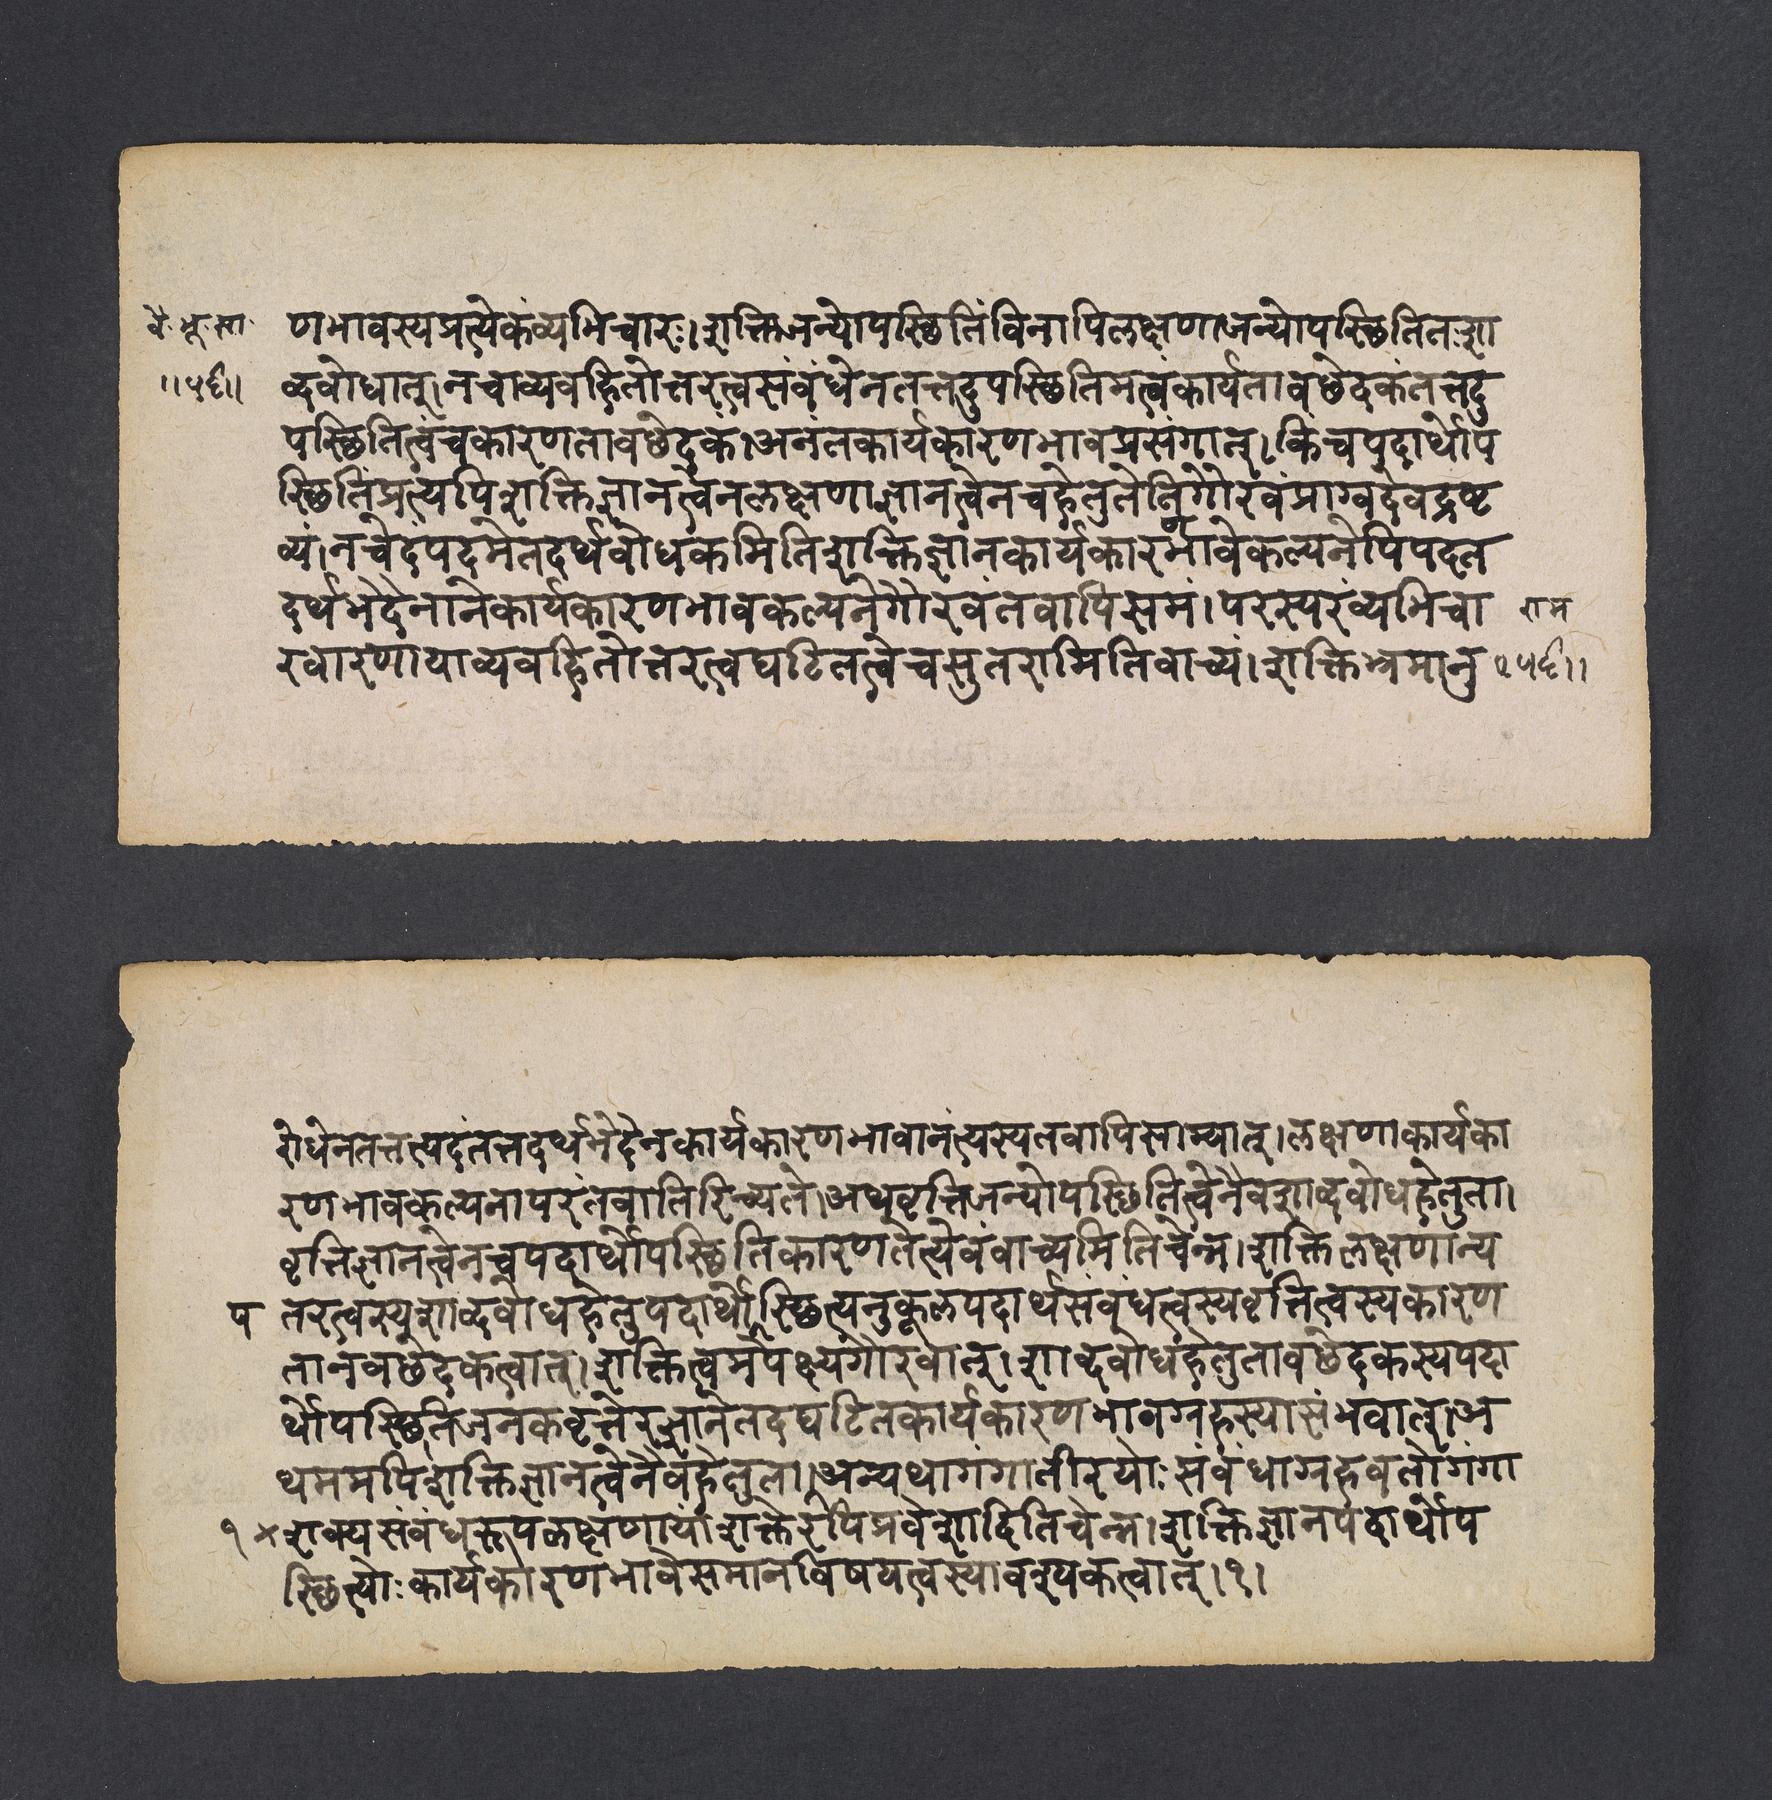 वै॰ भू॰ सा॰
॥५६॥
णभावस्यप्रत्येकंव्यभिचारः।शक्तिजन्योपस्थितिंविनापिलक्षणाजन्योपस्थितितःशा
व्दवोधात्।नचाव्यवहितोत्तरत्वसंवंधेनतत्तदुपस्थितिमत्वंकार्यतावछेदकंतत्तदु
पस्थितित्वंचकारणतावछेदकं।अनंतकार्यकारणभावप्रसंगात्।किंचपदार्थोप
स्थितिंप्रत्यपिशक्तिज्ञानत्वेनलक्षणाज्ञानत्वेनचहेतुतेतिगौरवंप्राग्वदेवद्रष्ट
व्यं।नचेदंपदमेतदर्थवोधकमितिशक्तिज्ञानकार्यकारणभावकल्पनेपिपदत
दर्थभेदेनानेककार्यकारणभावकल्पनेगौरवंतवापिसमं।परस्परंव्यभिचा
रवारणायाव्यवहितोत्तरत्वघटितत्वेचसुतरामितिवाच्यं।शक्तिभ्रमानु
राम
॥५६॥
रोधेनतत्तत्पदतत्तदर्थभेदेनकार्यकारणभावानंत्यस्यतवापिसाम्यात्।लक्षणाकार्यका
रणभावकल्पनापरंतवातिरिच्यते।अथवृत्तिजन्योपस्थितित्वेनैवशाव्दवोधहेतुता।
वृत्तिज्ञानत्वेनचपदार्थोपस्थितिकारणतेत्येवंवाच्यमितिचेन्न।शक्तिलक्षणान्य
तरत्वस्यशाव्दवोधहेतुपदार्थोस्थित्यनुकूलपदार्थसंवंधत्वस्यवृत्तित्वस्यकारण
प
तानवछेदकत्वात्।शक्तित्वमपेक्ष्यगौरवात्।शाव्दवोधहेतुतावछेदकस्यपदा
र्थोपस्थितिजनकवृत्तेरज्ञानेतदघटितकार्यकारणभावग्रहस्यासंभवात्।अ
थममपिशक्तिज्ञानत्वेनैवहेतुता।अन्यथागंगातीरयोःसंवंधाग्रहवतोगंगा
१ ×शक्यसंवंधरूपलक्षणायांशक्तेरपिप्रवेशादितिचेन्न।शक्तिज्ञानपदार्थोप
स्थित्योःकार्यकारणभावेसमानविषयत्वस्यावश्यकत्वात्।१।